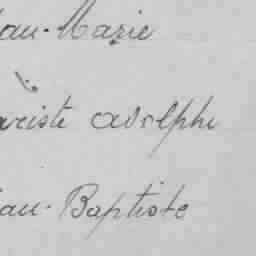 ean-Marie
ariste adolphe
ean-Baptiste